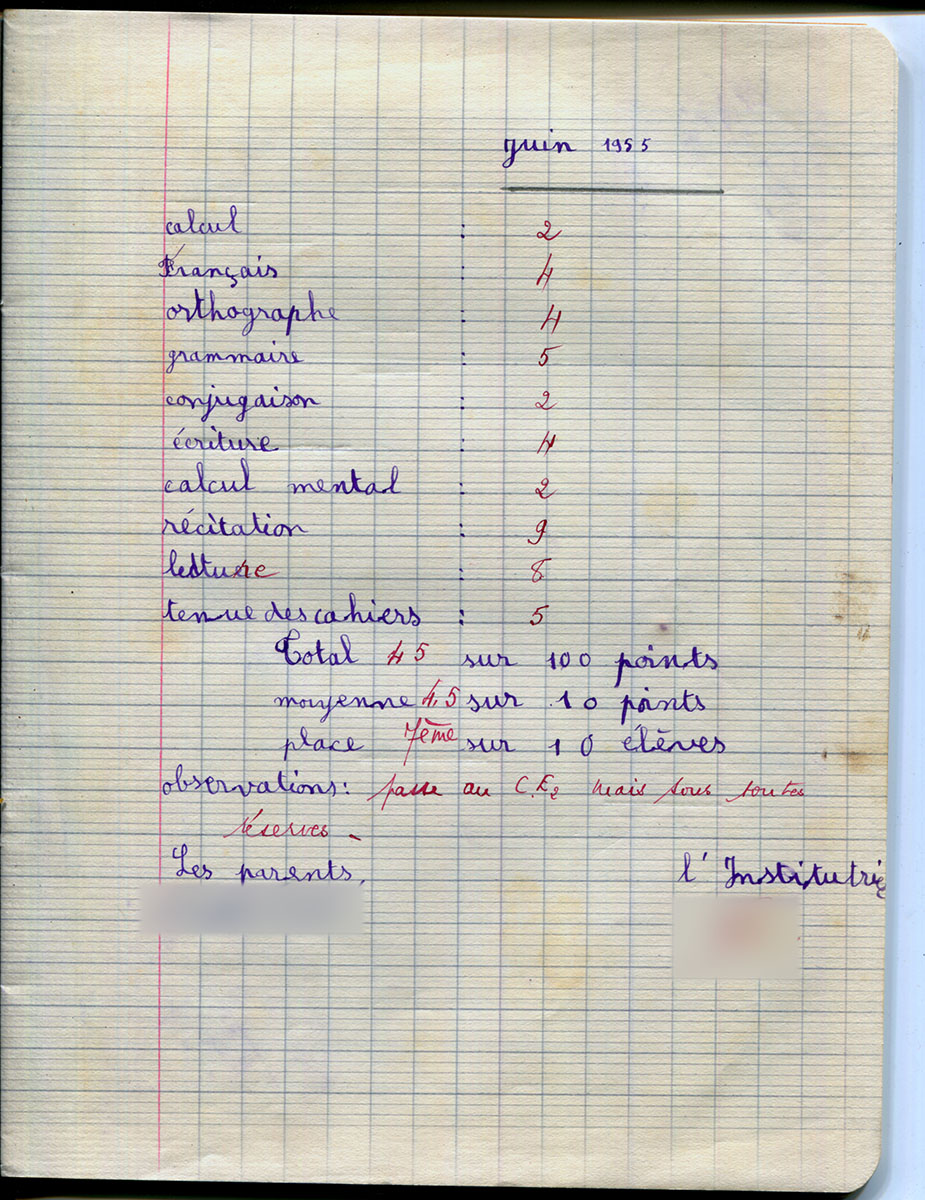 juin 1955
calcul : 2
Français : 4
orthographe : 4
grammaire : 5
conjugaison : 2
écriture : 4
calcul mental : 2
récitation : 9
lecture : 8
tenue des cahiers : 5
Total 45 sur 100 points
moyenne 4,5 sur 10 points
place 7ème sur 10 élèves
observations: passe au C.E2 mais sous toutes
réserves -
Les parents,
l'Institutrice